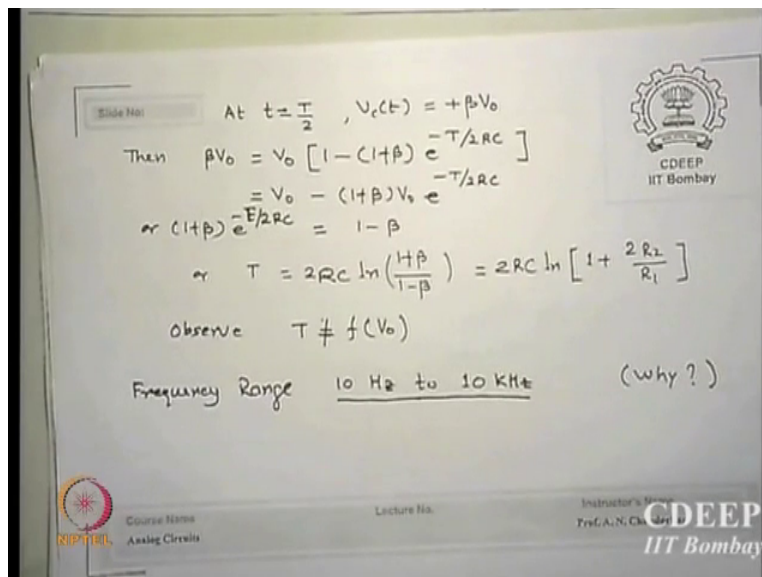 Slide No:
At t = T/2 , Vc(t) = +βV₀
Then βV₀ = V₀ [1 - (1+β) e^(-T/2RC) ]
= V₀ - (1+β)V₀ e^(-T/2RC)
or (1+β) e^(-T/2RC) = 1 - β
or T = 2RC ln((1+β)/(1-β)) = 2RC ln [1 + 2R₂/R₁ ]
Observe T ≠ f(V₀)
Frequency Range 10 Hz to 10 KHz (Why?)
CDEEP
IIT Bombay
NPTEL
Course Name
Analog Circuits
Lecture No.
Instructor's
Prof. A. N.
CDEEP
IIT Bombay